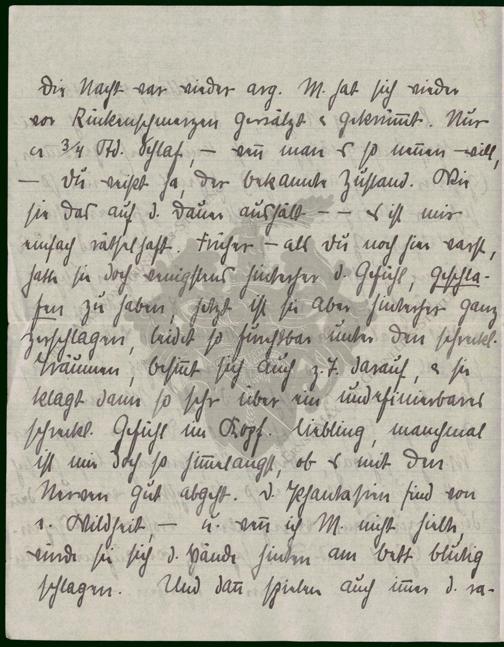 Die Nacht war wieder arg. M. hat sich wieder
vor Rückenschmerzen gewälzt & gekrümmt. Nur
ca 3/4 Std. Schlaf, – wenn man es so nennen will,
– Du weißt ja, der bekannte Zustand. Wie
sie das auf d. Dauer aushält – – es ist mir
einfach rätselhaft. Früher – als Du noch hier warst,
hatte sie doch wenigstens hinterher d. Gefühl, geschla-
fen zu haben, jetzt ist sie aber hinterher ganz
zerschlagen, leidet so furchtbar unter den schreckl.
Träumen, besinnt sich auch z. T. darauf, & sie
klagt dann so sehr über ein undefinierbares
schreckl. Gefühl im Kopf. Liebling, manchmal
ist mir doch so himmelangst, ob es mit den
Nerven gut abgeht. D. Phantasien sind von
e. Wildheit – u. wenn ich M. nicht hielte
würde sie sich d. Hände hinten am Bett blutig
schlagen. Und dann spielen auch immer d. ra-